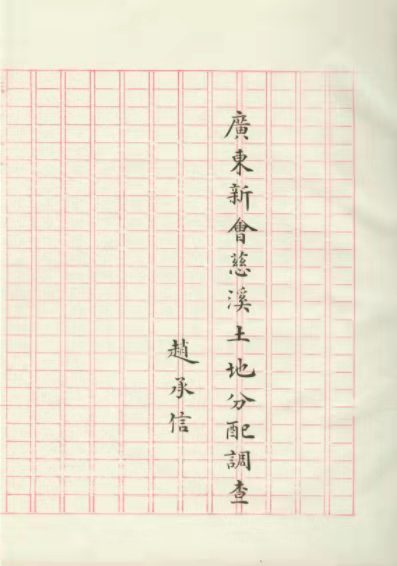 廣東新會慈溪土地分配調查
趙承信